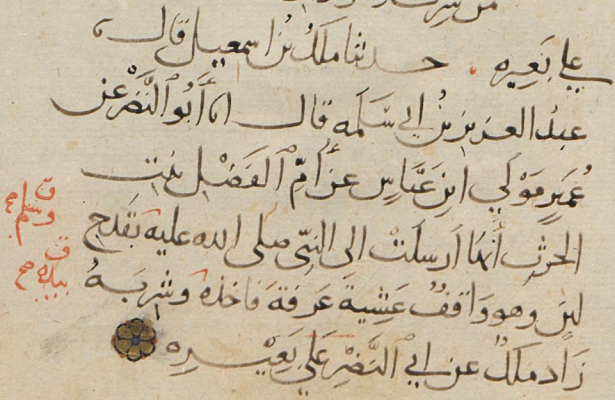 علي بَعِيره . حدثنا ملكُ بنُ اسمعيل قال
عبدُ العزيز بنُ ابي سَلَمه قال انا أَبُو النَّضْر عن
عُمَيرٍ مَوْلَي ابنِ عَبَّاسٍ عن أُمِّ الفَضْل بنت
الحرثِ أنها ارسلَتْ الى النبيِّ صلى الله عليه بقَدَحِ
لبنٍ وهو واقفٌ عَشِيةَ عَرفةَ فاخذهُ وشَرِبَهُ
زاد ملكٌ عن ابي النَّضْرِ عَلَي بَعِيْرِه
وسلم صح
بيده صح